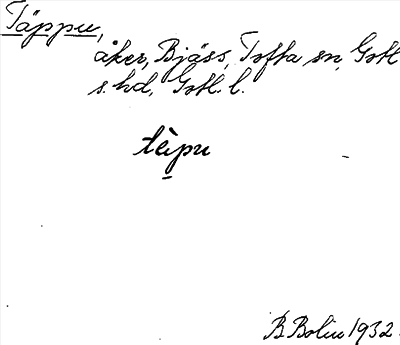 Täppu,
åker, Bjäss, Tofta sn, Gotl.
s. hd, Gotl. l.
tèpu
B Bolin 1932.